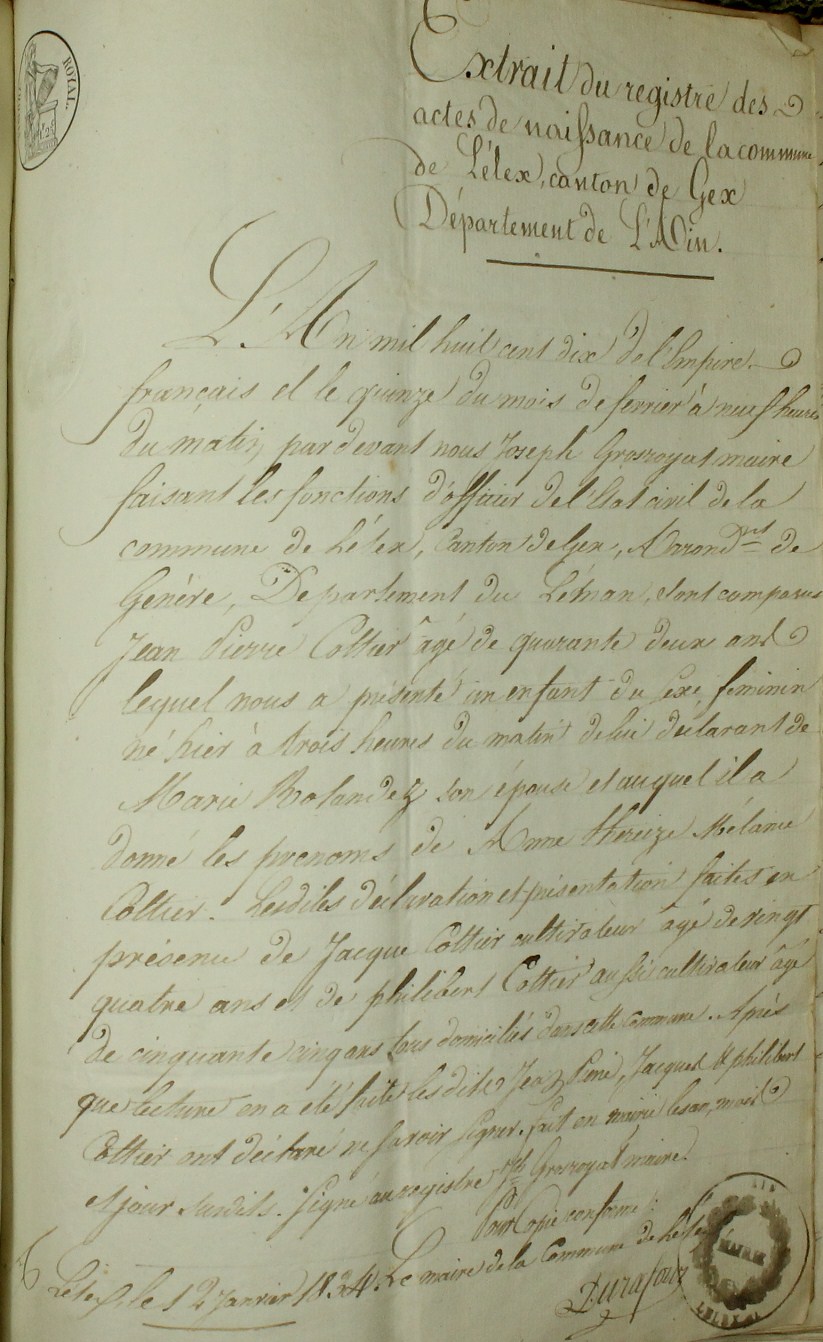 ROYAL.
Extrait du registre des
actes de naissance de la commune
de Lélex, canton de Gex
Département de L'Ain.
L'An mil huit cent dix de l'Empire
français et le quinze du mois de fevrier à neuf heures
du matin, par devant nous Joseph Grosroyat maire
faisant les fonctions d'officier de l'Etat civil de la
commune de Lélex, Canton de Gex, Arrond.nt de
Genève, Departement du Léman, sont comparus
Jean Pierre Cottier âgé de quarante deux ans
lequel nous a présenté un enfant du sexe feminin
né hier à trois heures du matin de lui déclarant de
Marie Rolandez son épouse et auquel il a
donné les prenoms de Anne thereize Mélanie
Cottier. Lesdites déclaration et présentation faites en
présence de Jacque Cottier cultivateur âgé de vingt
quatre ans et de philibert Cottier aussi cultivateur âgé
de cinquante cinq ans tous domiciliés dans cette Commune. Après
que lecture en a été faite les dits Jean Pierre, Jacques & philibert
Cottier ont déclaré ne savoir signer. fait en mairie les an, mois
et jour susdits. Signé au registre Jph Grosroyat maire.
Pour Copie conforme :
Le maire de la Commune de Lélex
Lélex, le 12 Janvier 1834.
Durafour
AIN
MAIRIE
LELEX